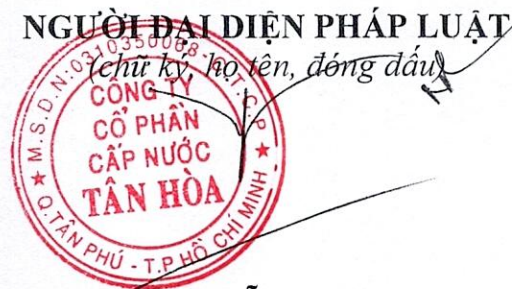 NGƯỜI ĐẠI DIỆN PHÁP LUẬT
(chữ ký, họ tên, đóng dấu)
M.S.D.N:0310350068-C.T.C.P
CÔNG TY
CỔ PHẦN
CẤP NƯỚC
TÂN HÒA
Q.TÂN PHÚ - T.P HỒ CHÍ MINH